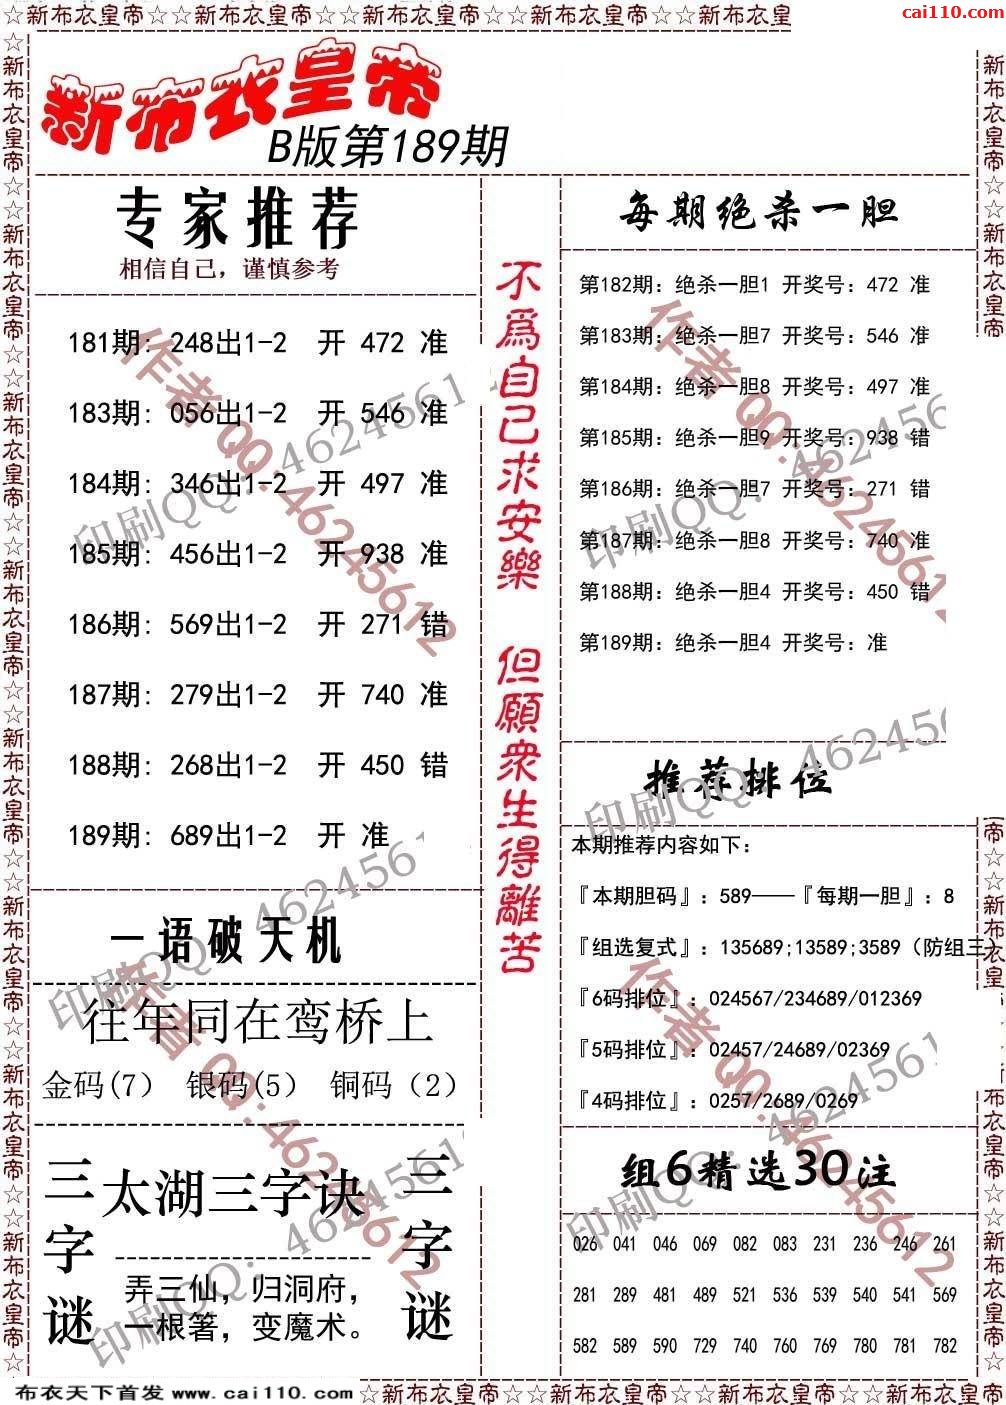 ☆新布衣皇帝☆☆新布衣皇帝☆☆新布衣皇帝☆☆新布衣皇帝☆☆新布衣皇帝
cai110.com
新布衣皇帝
B版第189期
专家推荐
相信自己，谨慎参考
181期: 248出1-2 开 472 准
183期: 056出1-2 开 546 准
184期: 346出1-2 开 497 准
185期: 456出1-2 开 938 准
186期: 569出1-2 开 271 错
187期: 279出1-2 开 740 准
188期: 268出1-2 开 450 错
189期: 689出1-2 开 准
一语破天机
往年同在鸾桥上
金码(7） 银码(5） 铜码（2）
三字谜
太湖三字诀
弄三仙，归洞府，
一根箸，变魔术。
三字谜
不爲自己求安樂 但願衆生得離苦
每期绝杀一胆
第182期: 绝杀一胆1 开奖号: 472 准
第183期: 绝杀一胆7 开奖号: 546 准
第184期: 绝杀一胆8 开奖号: 497 准
第185期: 绝杀一胆9 开奖号: 938 错
第186期: 绝杀一胆7 开奖号: 271 错
第187期: 绝杀一胆8 开奖号: 740 准
第188期: 绝杀一胆4 开奖号: 450 错
第189期: 绝杀一胆4 开奖号: 准
推荐排位
本期推荐内容如下：
『本期胆码』: 589——『每期一胆』: 8
『组选复式』: 135689;13589;3589（防组三）
『6码排位』: 024567/234689/012369
『5码排位』: 02457/24689/02369
『4码排位』: 0257/2689/0269
组6精选30注
026 041 046 069 082 083 231 236 246 261
281 289 481 489 521 536 539 540 541 569
582 589 590 729 740 760 769 780 781 782
作者QQ:46245612
印刷QQ:46245612
布衣天下首发 www.cai110.com
☆新布衣皇帝☆☆新布衣皇帝☆☆新布衣皇帝☆☆新布衣皇帝☆